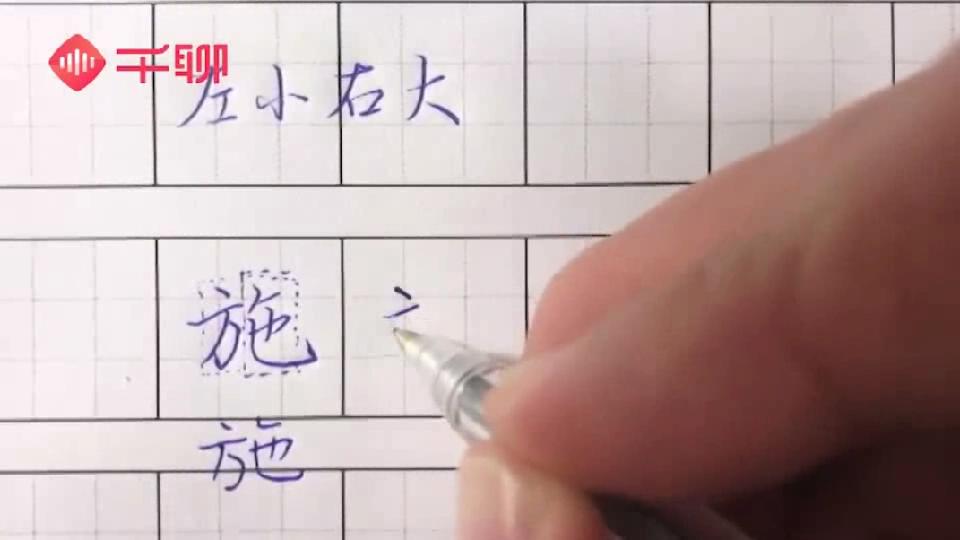 千聊
左小右大
施
施